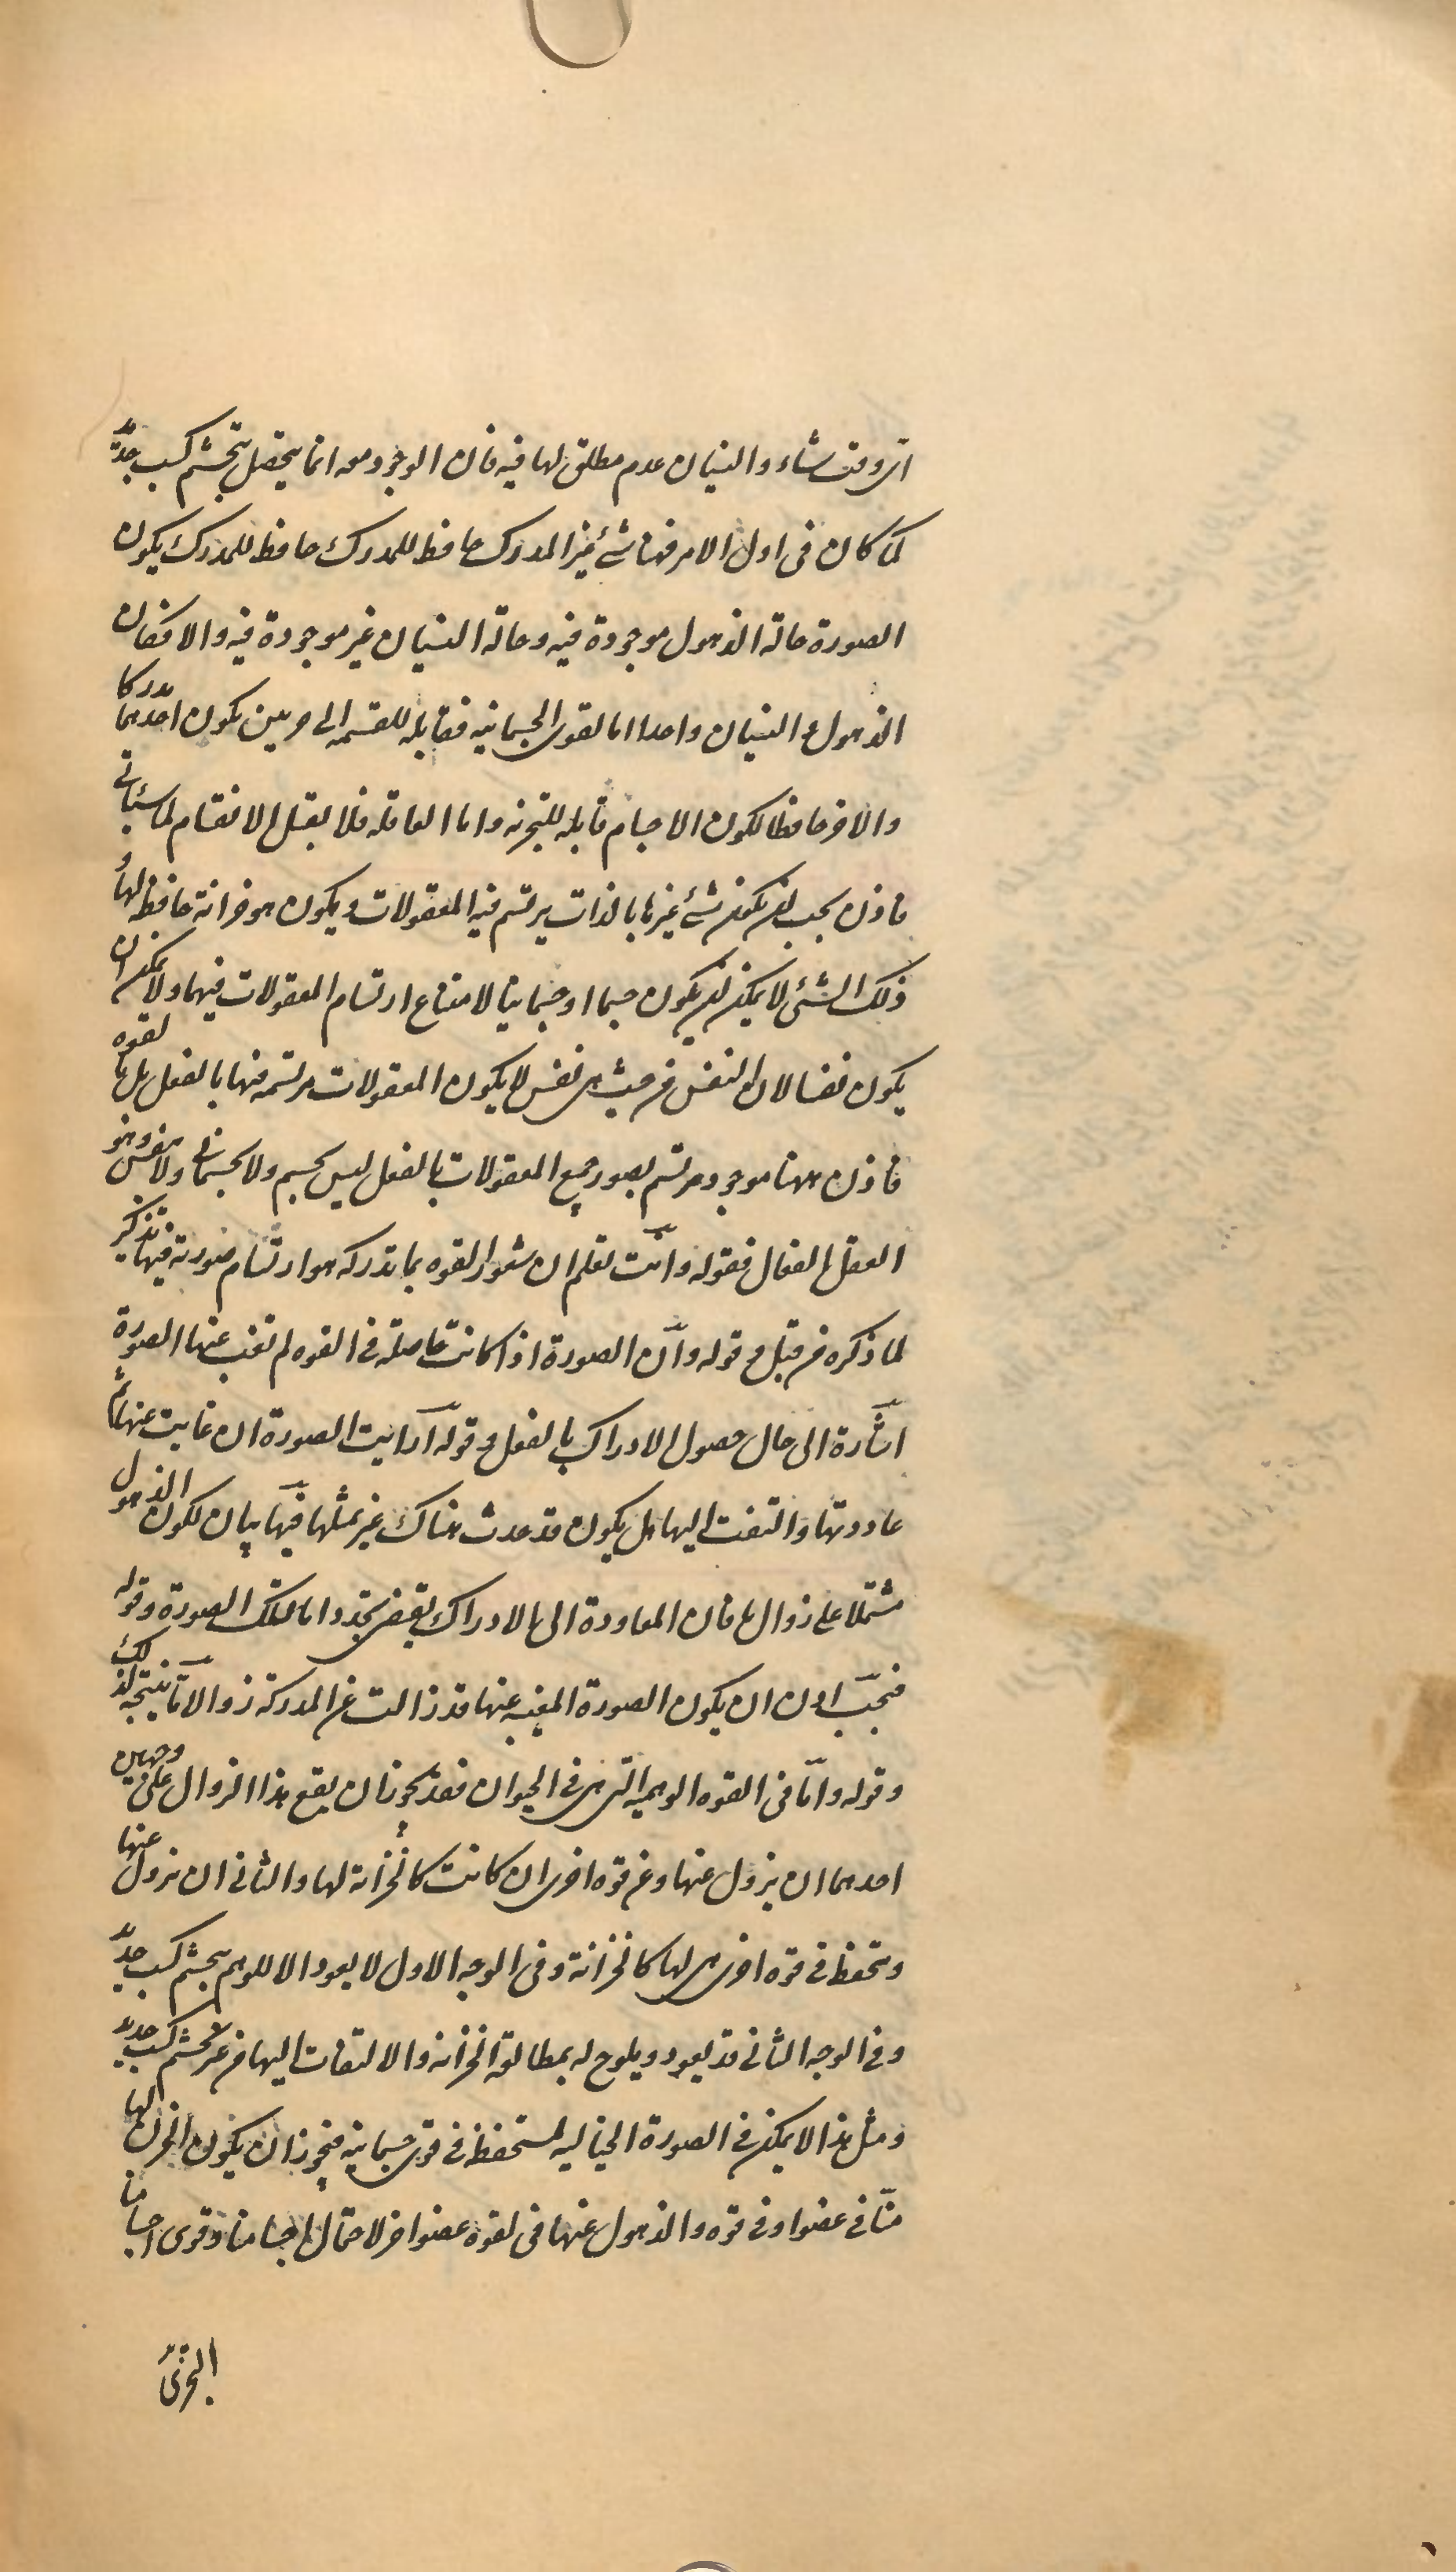 ای وقت شاء والنسیان عدم مطلق لها فیه فان الوجود معه انما یحصل بتجشم کسب جدید
کما کان فی اول الامر فهنا شئ غیر المدرک حافظ للمدرک حافظ للمدرک یکون
الصورة حالة الذهول موجودة فیه وحالة النسیان غیر موجودة فیه والا فکان
الذهول والنسیان واحدا اما القوی الجسمانیه فقابله للقسمه الی جزئین یکون احدهما مدرکا
والاخر حافظا لکون الاجسام قابله للتجزیه واما العاقله فلا یقبل الانقسام لما سیأتی
فاذن یجب ان یکون شئ غیرها بالذات یرتسم فیه المعقولات ویکون هو خزانة حافظة لها
ذلک الشئ لا یمکن ان یکون جسما او جسمانیا لامتناع ارتسام المعقولات فیهما ولا یمکن ان
یکون نفسا لان النفس من حیث هی نفس لا یکون المعقولات مرتسمة فیها بالفعل بل بالقوه
فاذن هنا موجود مرتسم بصور جمیع المعقولات بالفعل لیس بجسم ولا بجسمانی ولا نفس وهو
العقل الفعال فقوله وانت تعلم ان شعور القوه بما تدرکه هو ارتسام صورته فیها تذکیر
لما ذکره من قبل و قوله وان الصورة اذا کانت حاصلة فی القوه لم تغب عنها الصورة
اشارة الی حال حصول الادراک بالفعل و قوله ارایت الصورة ان غابت عنها ثم
عاودتها والتفت الیها هل یکون قد حدث هناک غیر تمثلها فیها بیان لکون الذهول
مشتملا علی زوال ما فان المعاودة الی الادراک یقتضی تجددا ما لتلک الصورة وقوله
فیجب اذن ان یکون الصورة المغیبة عنها قد زالت عن المدرکة زوالا ما نتیجة لذلک
وقوله واما فی القوه الوهمیه التی هی فی الحیوان فقد یجوز ان یقع هذا الزوال علی وجهین
احدهما ان یزول عنها وعن قوه اخری ان کانت کالخزانة لها والثانی ان یزول عنها
وتحفظ فی قوه اخری هی لها کالخزانة وفی الوجه الاول لا یعود الا للوهم بتجشم کسب جدید
وفی الوجه الثانی قد یعود ویلوح له بمطالعة الخزانه والالتفات الیها من غیر تجشم کسب جدید
ومثل هذا لا یمکن فی الصورة الخیالیه المستحفظ فی قوی جسمانیه فیجوز ان یکون الخزن لها
منا فی عضو او فی قوه والذهول عنها فی لقوه عضو اخر لاحتمال اجسامنا وقوی اجسامنا
التجزئ